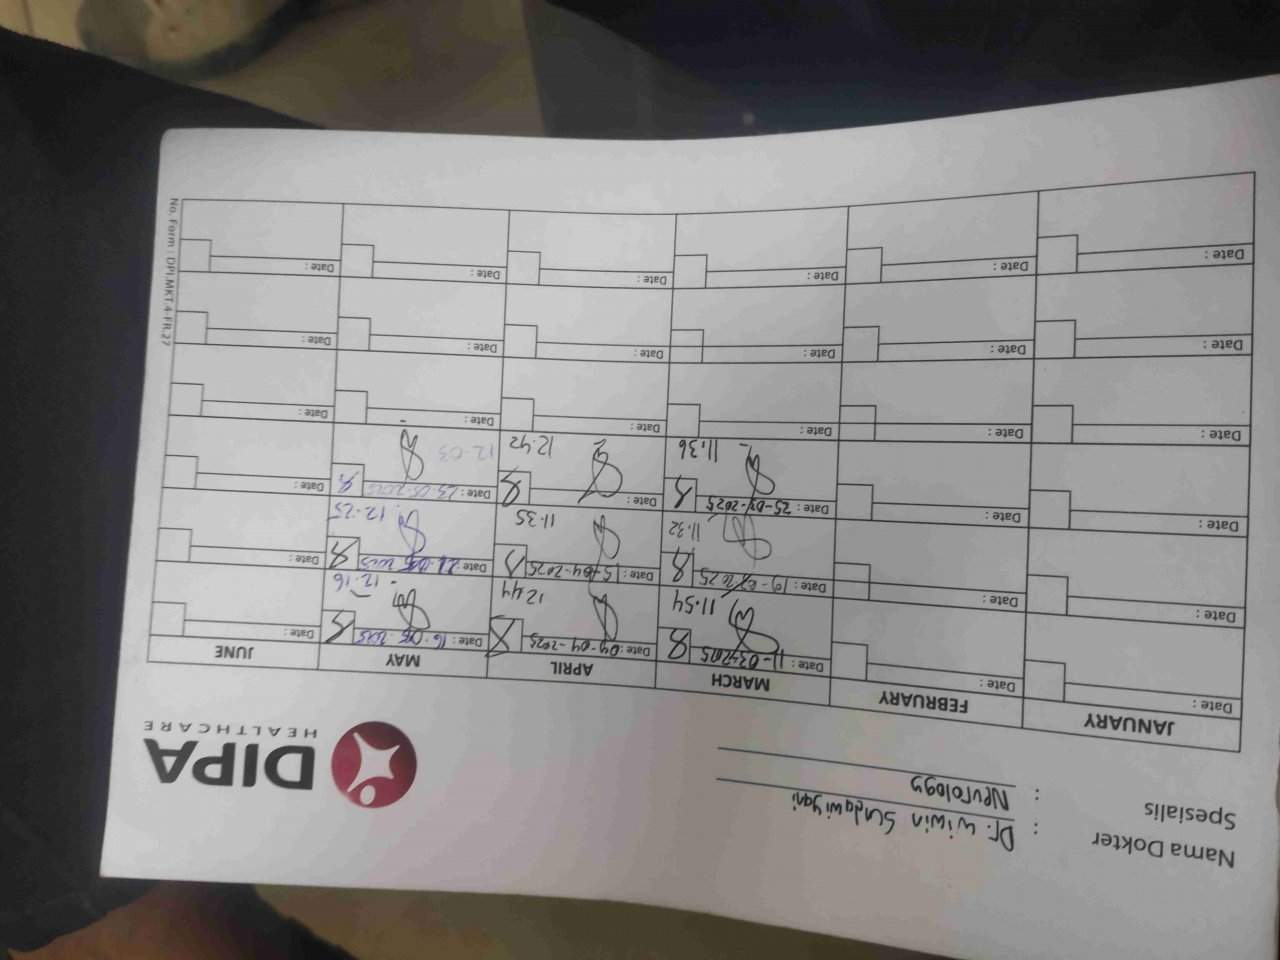 Nama Dokter : Dr. Wiwin Sundawiyani
Spesialis : Neurology
DIPA
HEALTHCARE
JANUARY FEBRUARY MARCH APRIL MAY JUNE
Date : Date : Date : 11-03-2025 Date : 09-04-2025 Date : 16-05-2025 Date :
11.54 12.44 12.16
Date : Date : Date : 19-03-2025 Date : 15-04-2025 Date : 21-05-2025 Date :
11.32 11.35 12.25
Date : Date : Date : 25-03-2025 Date : Date : 23-05-2025 Date :
11.36 12.42 12.03
Date : Date : Date : Date : Date : Date :
Date : Date : Date : Date : Date : Date :
Date : Date : Date : Date : Date : Date :
No. Form : DPI.MKT.4-FR.27